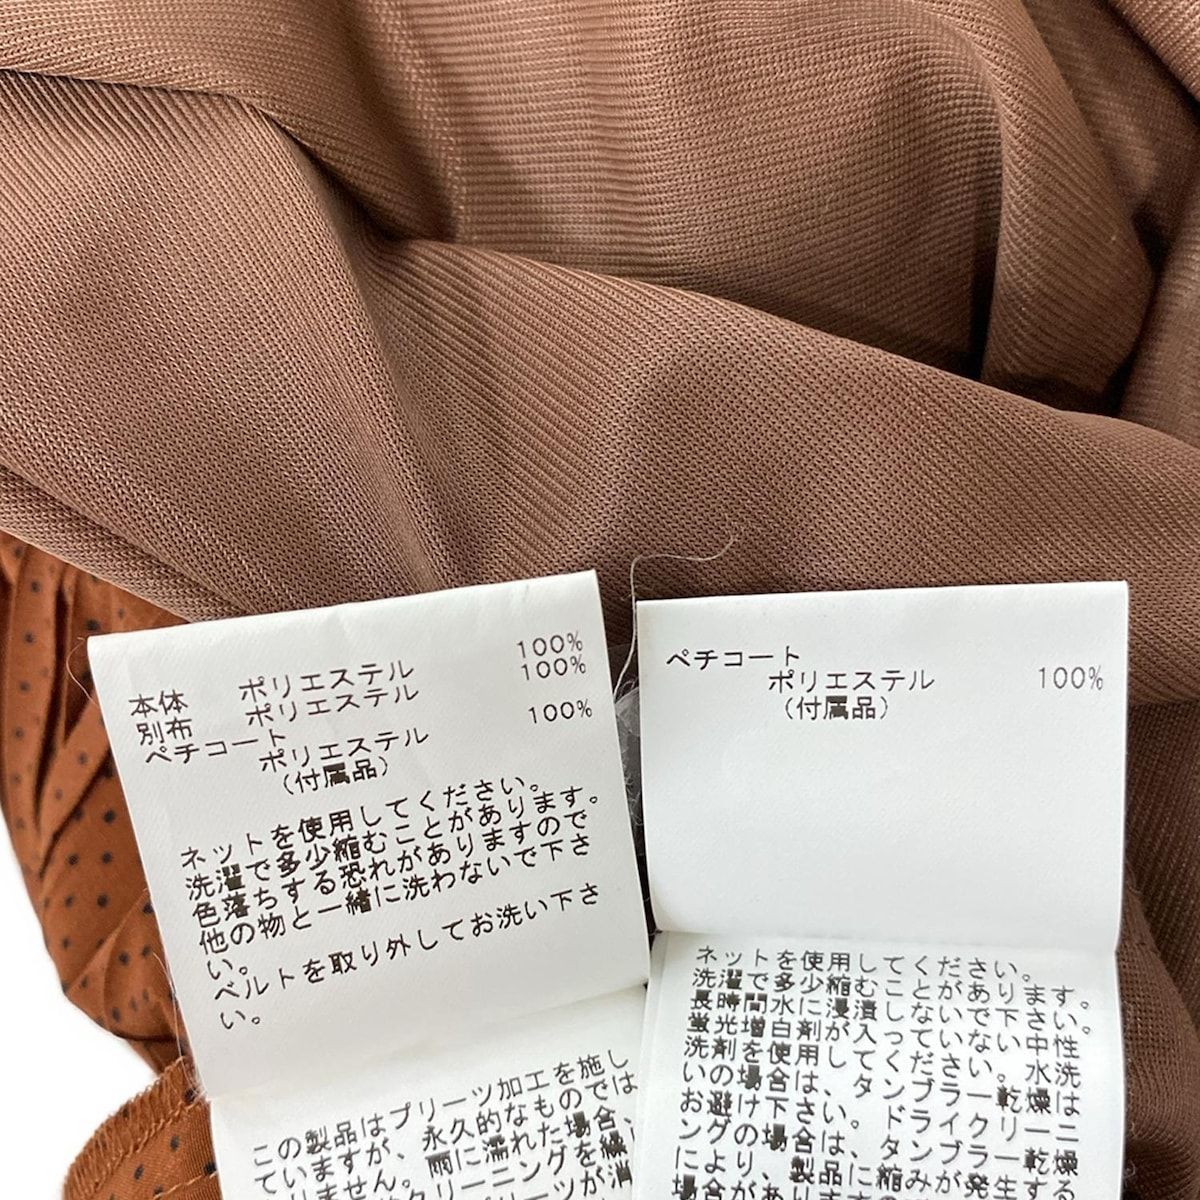 本体 ポリエステル 100%
別布 ポリエステル 100%
ペチコート
ポリエステル 100%
(付属品)
ネットを使用してください。
洗濯で多少縮むことがあります。
色落ちする恐れがありますので
他の物と一緒に洗わないで下さ
い。
ベルトを取り外してお洗い下さ
い。
この製品はプリーツ加工を施し
ていますが、永久的なものでは
ありません。雨に濡れた場合、
クリーニングを繰
プリーツが消
ペチコート
ポリエステル 100%
(付属品)
ネットを使用してください。
洗濯で多少縮むことがあります。
長時間水に浸漬しないで下さい。
蛍光増白剤が入っていない中性
洗剤を使用してください。水洗
いの場合は、タンブラー乾燥は
お避け下さい。ドライクリーニ
ングの場合は、タンブラー乾燥
により、製品に縮みが生ずる